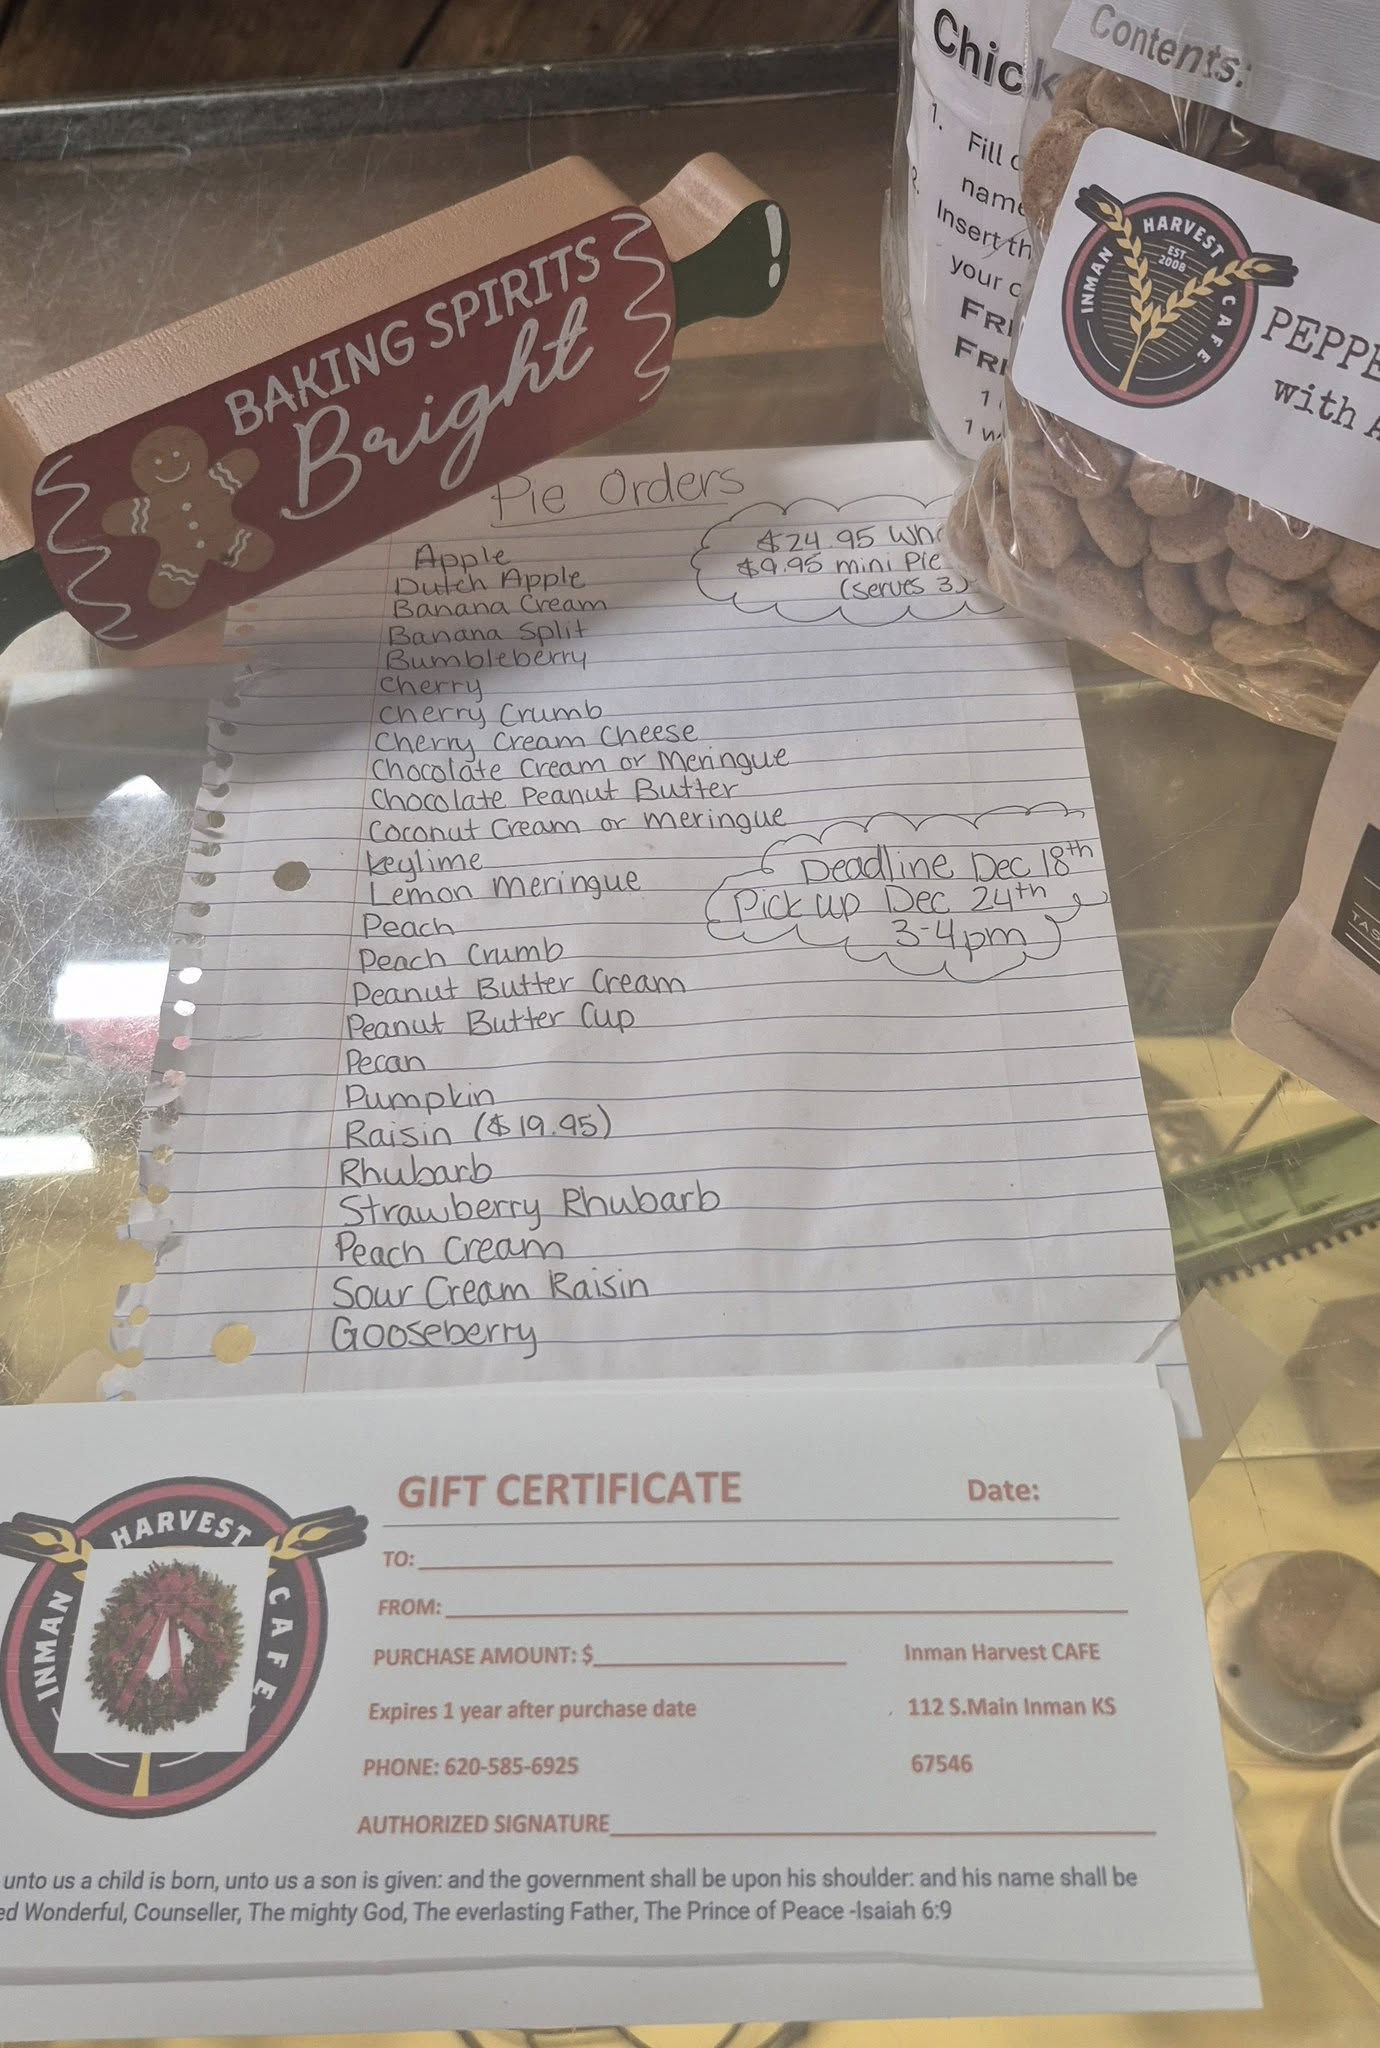 BAKING SPIRITS
Bright!
Chick
1. Fill
name
2.
Insert th
your
FRI
FRI
1
1
Contents:
INMAN HARVEST CAFE
EST
2008
PEPPE
with A
Pie Orders
$24.95 Who
$9.95 mini Pie
(serves 3)
Apple
Dutch Apple
Banana Cream
Banana Split
Bumbleberry
Cherry
Cherry Crumb
Cherry Cream Cheese
Chocolate Cream or Meringue
Chocolate Peanut Butter
Coconut Cream or meringue
Keylime
Lemon meringue
Peach
Peach Crumb
Peanut Butter Cream
Peanut Butter Cup
Pecan
Pumpkin
Raisin ($19.95)
Rhubarb
Strawberry Rhubarb
Peach Cream
Sour Cream Raisin
Gooseberry
Deadline Dec 18th
Pick up Dec 24th
3-4pm
TAS
INMAN HARVEST CAFE
GIFT CERTIFICATE
Date:
TO:
FROM:
PURCHASE AMOUNT: $
Inman Harvest CAFE
Expires 1 year after purchase date
112 S.Main Inman KS
PHONE: 620-585-6925
67546
AUTHORIZED SIGNATURE
unto us a child is born, unto us a son is given: and the government shall be upon his shoulder: and his name shall be
ed Wonderful, Counseller, The mighty God, The everlasting Father, The Prince of Peace -Isaiah 6:9